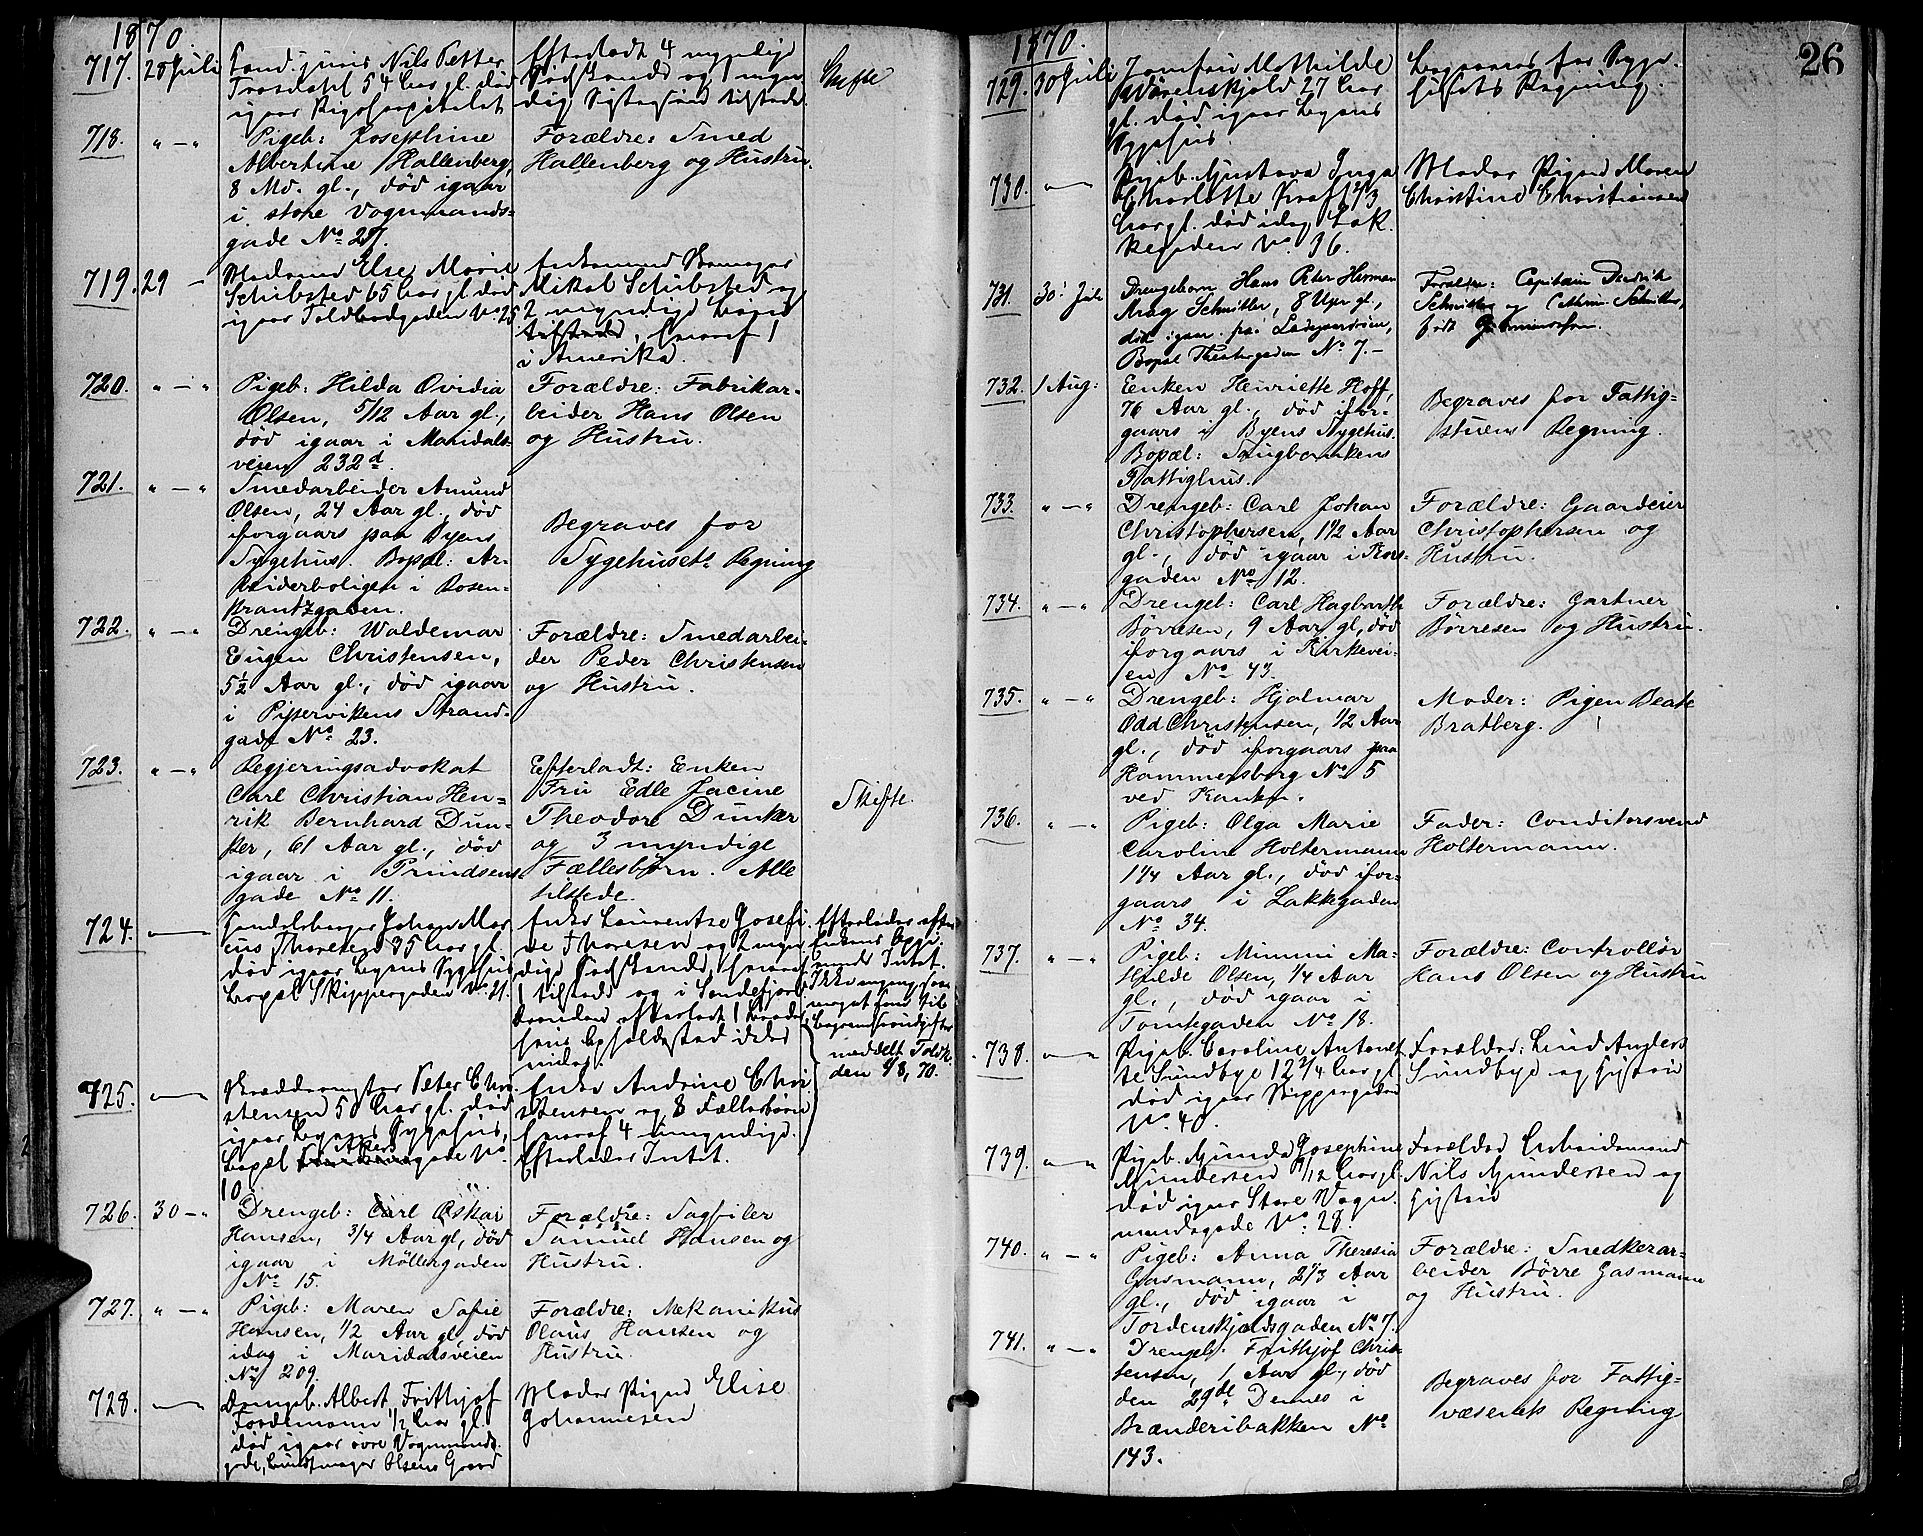 1870.
717. 28 Juli Cand. juris Nils Petter
Trosdahl 54 Aar gl. død
igaar Rigshospitalet
Efterladt 4 myndige
Sødskende og 1 myn-
dig Søstersøn tilstede
Skifte
718. " — " Pigeb: Josephine
Albertine Hallenberg,
8 Md. gl., død igaar
i store Vognmands-
gade No 27.
Forældre: Smed
Hallenberg og Hustru.
719. 29 — Madame Else Marie
Schibsted 65 Aar gl. død
igaar Toldbodgaden No. 25
Enkemand
Mikal Schibsted og
2 myndige Børn
tilstede, hvoraf 1
i Amerika.
720. " — " Pigeb: Hilda Ovidia
Olsen, 5/12 Aar gl.,
død igaar i Maridals-
veien 232d.
Forældre: Fabrikar-
beider Hans Olsen
og Hustru.
721. " — " Smedarbeider Amund
Olsen, 24 Aar gl., død
iforgaars paa Byens
Sygehus. Bopæl: Ar-
beiderboligen i Rosen-
krantzgaden.
Begraves for
Sygehusets Regning
722. " — " Drengeb: Waldemar
Eugen Christensen,
5½ Aar gl., død igaar
i Pipervikens Strand-
gade No 23.
Forældre: Smedarbei-
der Peder Christensen
og Hustru.
723. " — " Regjeringsadvokat
Carl Christian Hen-
rik Bernhard Dun-
ker, 61 Aar gl., død
igaar i Prindsens
gade No 11.
Efterladt: Enken
Fru Edle Jacine
Theodore Dunker
og 3 myndige
Fællesbørn. Alle
tilstede.
Skifte.
724. — Handelsborger Johan Mar-
ius Thoresen 35 Aar gl.
død igaar Byens Sygehus
Bopæl Skippergaden No. 21.
Enke Laurentze Josefi-
ne Thoresen og 2 myn-
dige Sødskende, hvoraf
1 tilstede og i Sandefjord
Efterlader efter
Enkens Opgi-
vende Intet.
meddelt Toldk.
den 4/8, 70.
725. — Peter Chri-
stensen 50 Aar gl. død
igaar Byens Sygehus,
Bopæl Akers gade No
10.
Enke Andrine Chri-
stensen og 8 Fællesbørn
hvoraf 4 umyndige.
Efterlader Intet.
726. 30 — " Drengeb: Carl Oskar
Hansen, 3/4 Aar gl., død
igaar i Møllergaden
No 15.
Forældre: Sagfiler
Samuel Hansen og
Hustru.
727. " — " Pigeb: Maren Sofie
Hansen, 1/2 Aar gl., død
idag i Maridalsveien
No 209.
Forældre: Mekanikus
Olaus Hansen og
Hustru.
728. — Drengeb. Albert Frithjof
Fordemann 1/2 Aar gl.
død igaar øvre Vognmands-
gade, Olsens Gaard
Moder Pigen Elise
Johannesen
1870.
26
729. 30 Juli Jomfru Mathilde
Wærenskjold 27 Aar
gl. død igaar Byens
Sygehus.
Begraves for Syge-
husets Regning.
730. — Pigeb. Gustava Inga
Charlotte Kraft 1/3
Aar gl. død idag Lak-
kegaden No. 36.
Moder Pigen Maren
Christine Christiansen
731. 30' Juli Drengebarn Hans Peter Herman
Krag Schnitler, 8 Uger gl.,
død igaar paa Ladegaardsøen,
Bopæl Theatergaden No 7. —
Forældre: Capitain Diedrik
Schnitler og Cathrin Schnitler,
født
732. 1 Aug: Enken Henriette Hoff,
76 Aar gl., død ifor-
gaars i Byens Sygehus.
Bopæl: Sangbankens
Fattighus.
Begraves for Fattig-
stuens Regning.
733. " — " Drengeb: Carl Johan
Christophersen, 1½ Aar
gl., død igaar i Kors-
gaden No 12.
Forældre: Gaardeier
Christophersen og
Hustru.
734. " — " Drengeb: Carl Hagbarth
Børresen, 9 Aar gl., død
iforgaars i Kirkevei-
en No 43.
Forældre: Gartner
Børresen og Hustru.
735. " — " Drengeb: Hjalmar
Odd Christensen, 1/2 Aar
gl., død iforgaars paa
Hammersborg No 5
ved Kanken.
Moder: Pigen Beate
Bratberg.
736. " — " Pigeb: Olga Marie
Caroline Holtermann
1¼ Aar gl., død ifor-
gaars i Lakkegaden
No 34.
Fader: Conditorsvend
Holtermann.
737. " — " Pigeb: Mimmi Ma-
thilde Olsen, 1/4 Aar
gl., død igaar i
Tomtegaden No 18.
Forældre: Controllør
Hans Olsen og Hustru
738. " — " Pigeb. Caroline Antonet-
te Sundbye 12 3/4 Aar gl.
død igaar Skippergaden
No. 40.
Forældre: Anders
Sundbye og Hustru
739. " — " Pigeb. Gunda Josephine
Gundersen 9/12 Aar gl.
død igaar Store Vogn-
mandsgade No. 28.
Forældre Arbeidsmand
Nils Gundersen og
Hustru
740. " — " Pigeb: Anna Theresia
Gasmann, 2⅓ Aar
gl., død igaar i
Tordenskjoldsgaden No 7.
Forældre: Snedkerar-
beider Børre Gasmann
og Hustru.
741. " — " Drengeb: Frithjof Chris-
tensen, 1 Aar gl., død
den 29de Dennes i
Brænderibakken No
143.
Begraves for Fattig-
væsenets Regning